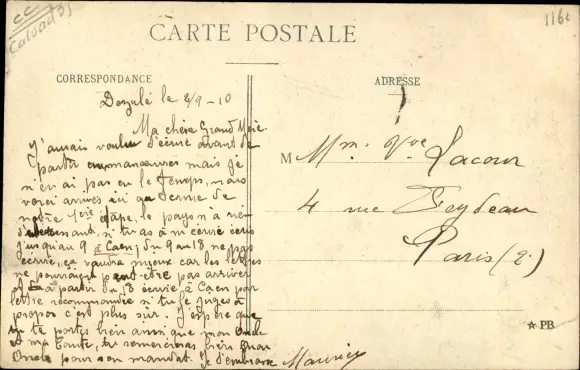 CC
Calvados
116c
CARTE POSTALE
CORRESPONDANCE
ADRESSE
Dozulé le 3/9-10
Ma chère Grand Mère
J'aurais voulu t'écrire avant de
partir en manœuvres mais je
n'en ai pas eu le temps, nous
voici arrivés ici terme de
notre 1ère étape, le pays n'a rien
d'intéressant, si tu as à m'écrire écris
jusqu'au 9 à Caen, du 9 au 18 ne pas
écrire, ça vaudra mieux car les lettres
ne pourraient peut-être pas arriver
et à partir du 18 écrire à Caen par
lettre recommandée si tu le juges à
propos c'est plus sûr. J'espère que
tu te portes bien ainsi que mon Oncle
et ma Tante, tu remercieras bien mon
Oncle pour son mandat. Je t'embrasse Maurice
M Mme Vve Lacour
4 rue Feydeau
Paris (2)
★ PB